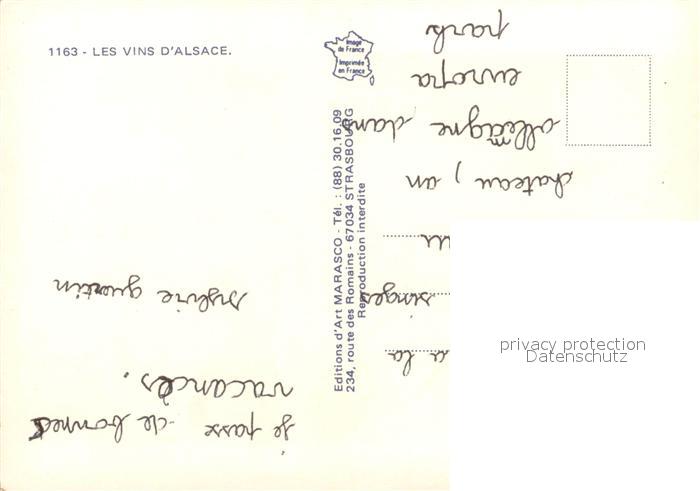 1163 - LES VINS D'ALSACE.
Image
de France
Imprimée
en France
Editions d'Art MARASCO - Tél. : (88) 30.16.09
234, route des Romains - 67034 STRASBOURG
Reproduction interdite
je passe de bonnes
vacances.
quentin
a la
singes
chateau, an
allemagne dans
europa
park
privacy protection
Datenschutz